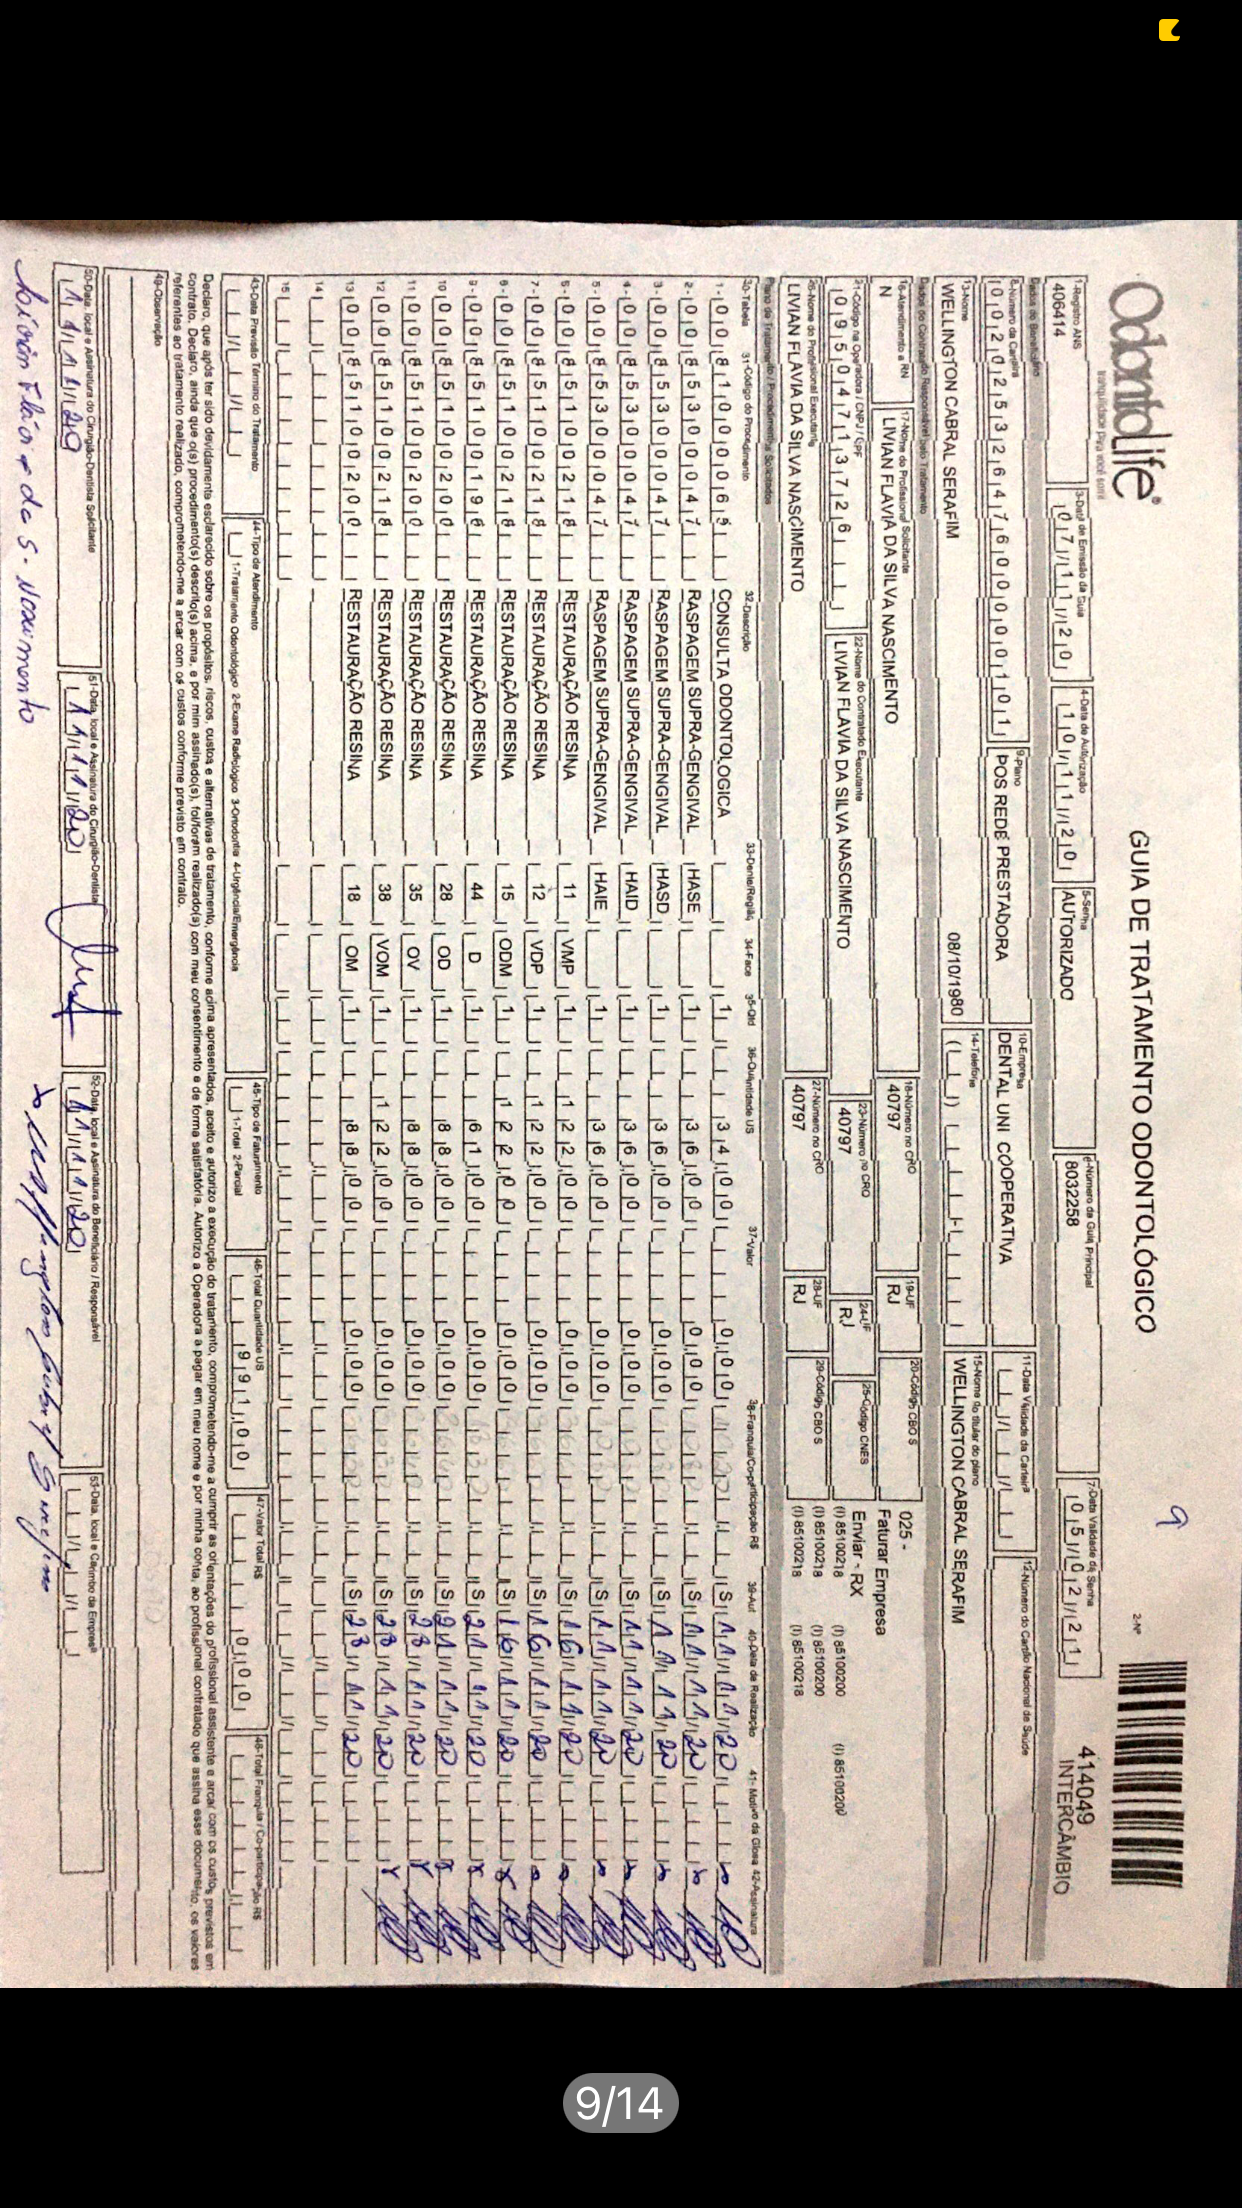 OdontoLife®
tranquilidade para você sorrir
GUIA DE TRATAMENTO ODONTOLÓGICO
9
2-Nº
414049
INTERCÂMBIO
1-Registro ANS
406414
3-Data de Emissão da Guia
07/11/20
4-Data de Autorização
10/11/20
5-Senha
AUTORIZADO
6-Número da Guia Principal
8032258
7-Data Validade da Senha
05/02/21
Dados do Beneficiário
8-Número da Carteira
00202532647600000101
9-Plano
POS REDE PRESTADORA
10-Empresa
DENTAL UNI COOPERATIVA
11-Data Validade da Carteira
12-Número do Cartão Nacional de Saúde
13-Nome
WELLINGTON CABRAL SERAFIM
08/10/1980
14-Telefone
15-Nome do titular do plano
WELLINGTON CABRAL SERAFIM
Dados do Contratado Responsável pelo Tratamento
16-Atendimento a RN
N
17-Nome do Profissional Solicitante
LIVIAN FLAVIA DA SILVA NASCIMENTO
18-Número no CRO
40797
19-UF
RJ
20-Código CBO S
025 -
Faturar Empresa
21-Código na Operadora / CNPJ / CPF
09504713726
22-Nome do Contratado Executante
LIVIAN FLAVIA DA SILVA NASCIMENTO
23-Número no CRO
40797
24-UF
RJ
25-Código CNES
Enviar - RX
(I) 85100218 (I) 85100200 (I) 85100200
26-Nome do Profissional Executante
LIVIAN FLAVIA DA SILVA NASCIMENTO
27-Número no CRO
40797
28-UF
RJ
29-Código CBO S
(I) 85100218 (I) 85100200
(I) 85100218 (I) 85100218
Plano de Tratamento / Procedimentos Solicitados
30-Tabela 31-Código do Procedimento 32-Descrição 33-Dente/Região 34-Face 35-Qtd 36-Quantidade US 37-Valor 38-Franquia/Co-participação R$ 39-Aut 40-Data de Realização 41-Motivo da Glosa 42-Assinatura
1- 00 81000065 CONSULTA ODONTOLOGICA 1 34,00 0,00 S 11/11/20
2- 00 85300047 RASPAGEM SUPRA-GENGIVAL HASE 1 36,00 0,00 S 11/11/20
3- 00 85300047 RASPAGEM SUPRA-GENGIVAL HASD 1 36,00 0,00 S 11/11/20
4- 00 85300047 RASPAGEM SUPRA-GENGIVAL HAID 1 36,00 0,00 S 11/11/20
5- 00 85300047 RASPAGEM SUPRA-GENGIVAL HAIE 1 36,00 0,00 S 11/11/20
6- 00 85100218 RESTAURAÇÃO RESINA 11 VMP 1 122,00 0,00 S 16/11/20
7- 00 85100218 RESTAURAÇÃO RESINA 12 VDP 1 122,00 0,00 S 16/11/20
8- 00 85100218 RESTAURAÇÃO RESINA 15 ODM 1 122,00 0,00 S 16/11/20
9- 00 85100196 RESTAURAÇÃO RESINA 44 D 1 61,00 0,00 S 21/11/20
10 00 85100200 RESTAURAÇÃO RESINA 28 OD 1 88,00 0,00 S 21/11/20
11 00 85100200 RESTAURAÇÃO RESINA 35 OV 1 88,00 0,00 S 23/11/20
12 00 85100218 RESTAURAÇÃO RESINA 38 VOM 1 122,00 0,00 S 23/11/20
13 00 85100200 RESTAURAÇÃO RESINA 18 OM 1 88,00 0,00 S 23/11/20
14
15
43-Data Previsão Término do Tratamento
44-Tipo de Atendimento
1-Tratamento Odontológico 2-Exame Radiológico 3-Ortodontia 4-Urgência/Emergência
45-Tipo de Faturamento
1-Total 2-Parcial
46-Total Quantidade US
991,00
47-Valor Total R$
0,00
48-Total Franquia / Co-participação R$
Declaro, que após ter sido devidamente esclarecido sobre os propósitos, riscos, custos e alternativas de tratamento, conforme acima apresentados, aceito e autorizo a execução do tratamento, comprometendo-me a cumprir as orientações do profissional assistente e arcar com os custos previstos em
contrato. Declaro, ainda que o(s) procedimento(s) descrito(s) acima, e por mim assinado(s), foi/foram realizado(s) com meu consentimento e de forma satisfatória. Autorizo a Operadora a pagar em meu nome e por minha conta, ao profissional contratado que assina esse documento, os valores
referentes ao tratamento realizado, comprometendo-me a arcar com os custos conforme previsto em contrato.
49-Observação
50-Data, local e Assinatura do Cirurgião-Dentista Solicitante
11/11/20
51-Data, local e Assinatura do Cirurgião-Dentista
11/11/20
52-Data, local e Assinatura do Beneficiário / Responsável
11/11/20
53-Data, local e Carimbo da Empresa
Livian Flávia da S. Nascimento
x Wellington Cabral Serafim
9/14